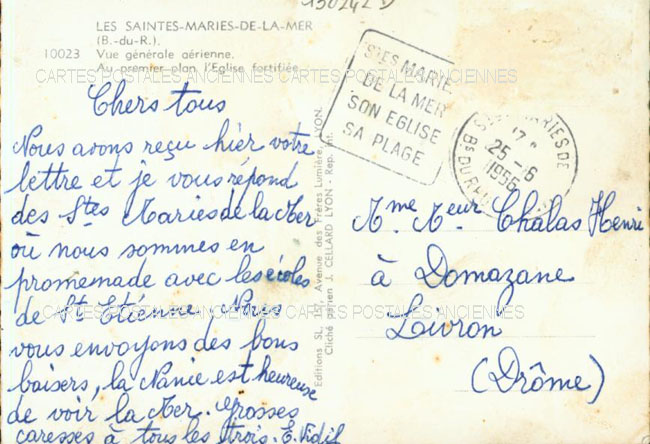 130242 D
LES SAINTES-MARIES-DE-LA-MER
(B.-du-R.).
10023 Vue générale aérienne.
Au premier plan l'Eglise fortifiée.
CARTES POSTALES ANCIENNES CARTES POSTALES ANCIENNES
Chers tous
Nous avons reçu hier votre
lettre et je vous répond
des Stes Maries de la Mer
où nous sommes en
promenade avec les écoles
de St Etiénne. Nous
vous envoyons des bons
baisers, la Nanie est heureuse
de voir la Mer. Grosses
caresses à tous les trois. E. Vidil
CARTES POSTALES ANCIENNES CARTES POSTALES ANCIENNES
Editions SL, 157, Avenue des Frères Lumière, LYON.
Cliché aérien J. CELLARD LYON - Rep. Int.
STES MARIE
DE LA MER
SON EGLISE
SA PLAGE
MARIES DE
25 - 6
1956
Bs DU RH
Mme Meur Chalas Henri
à Domazane
Livron
(Drôme)